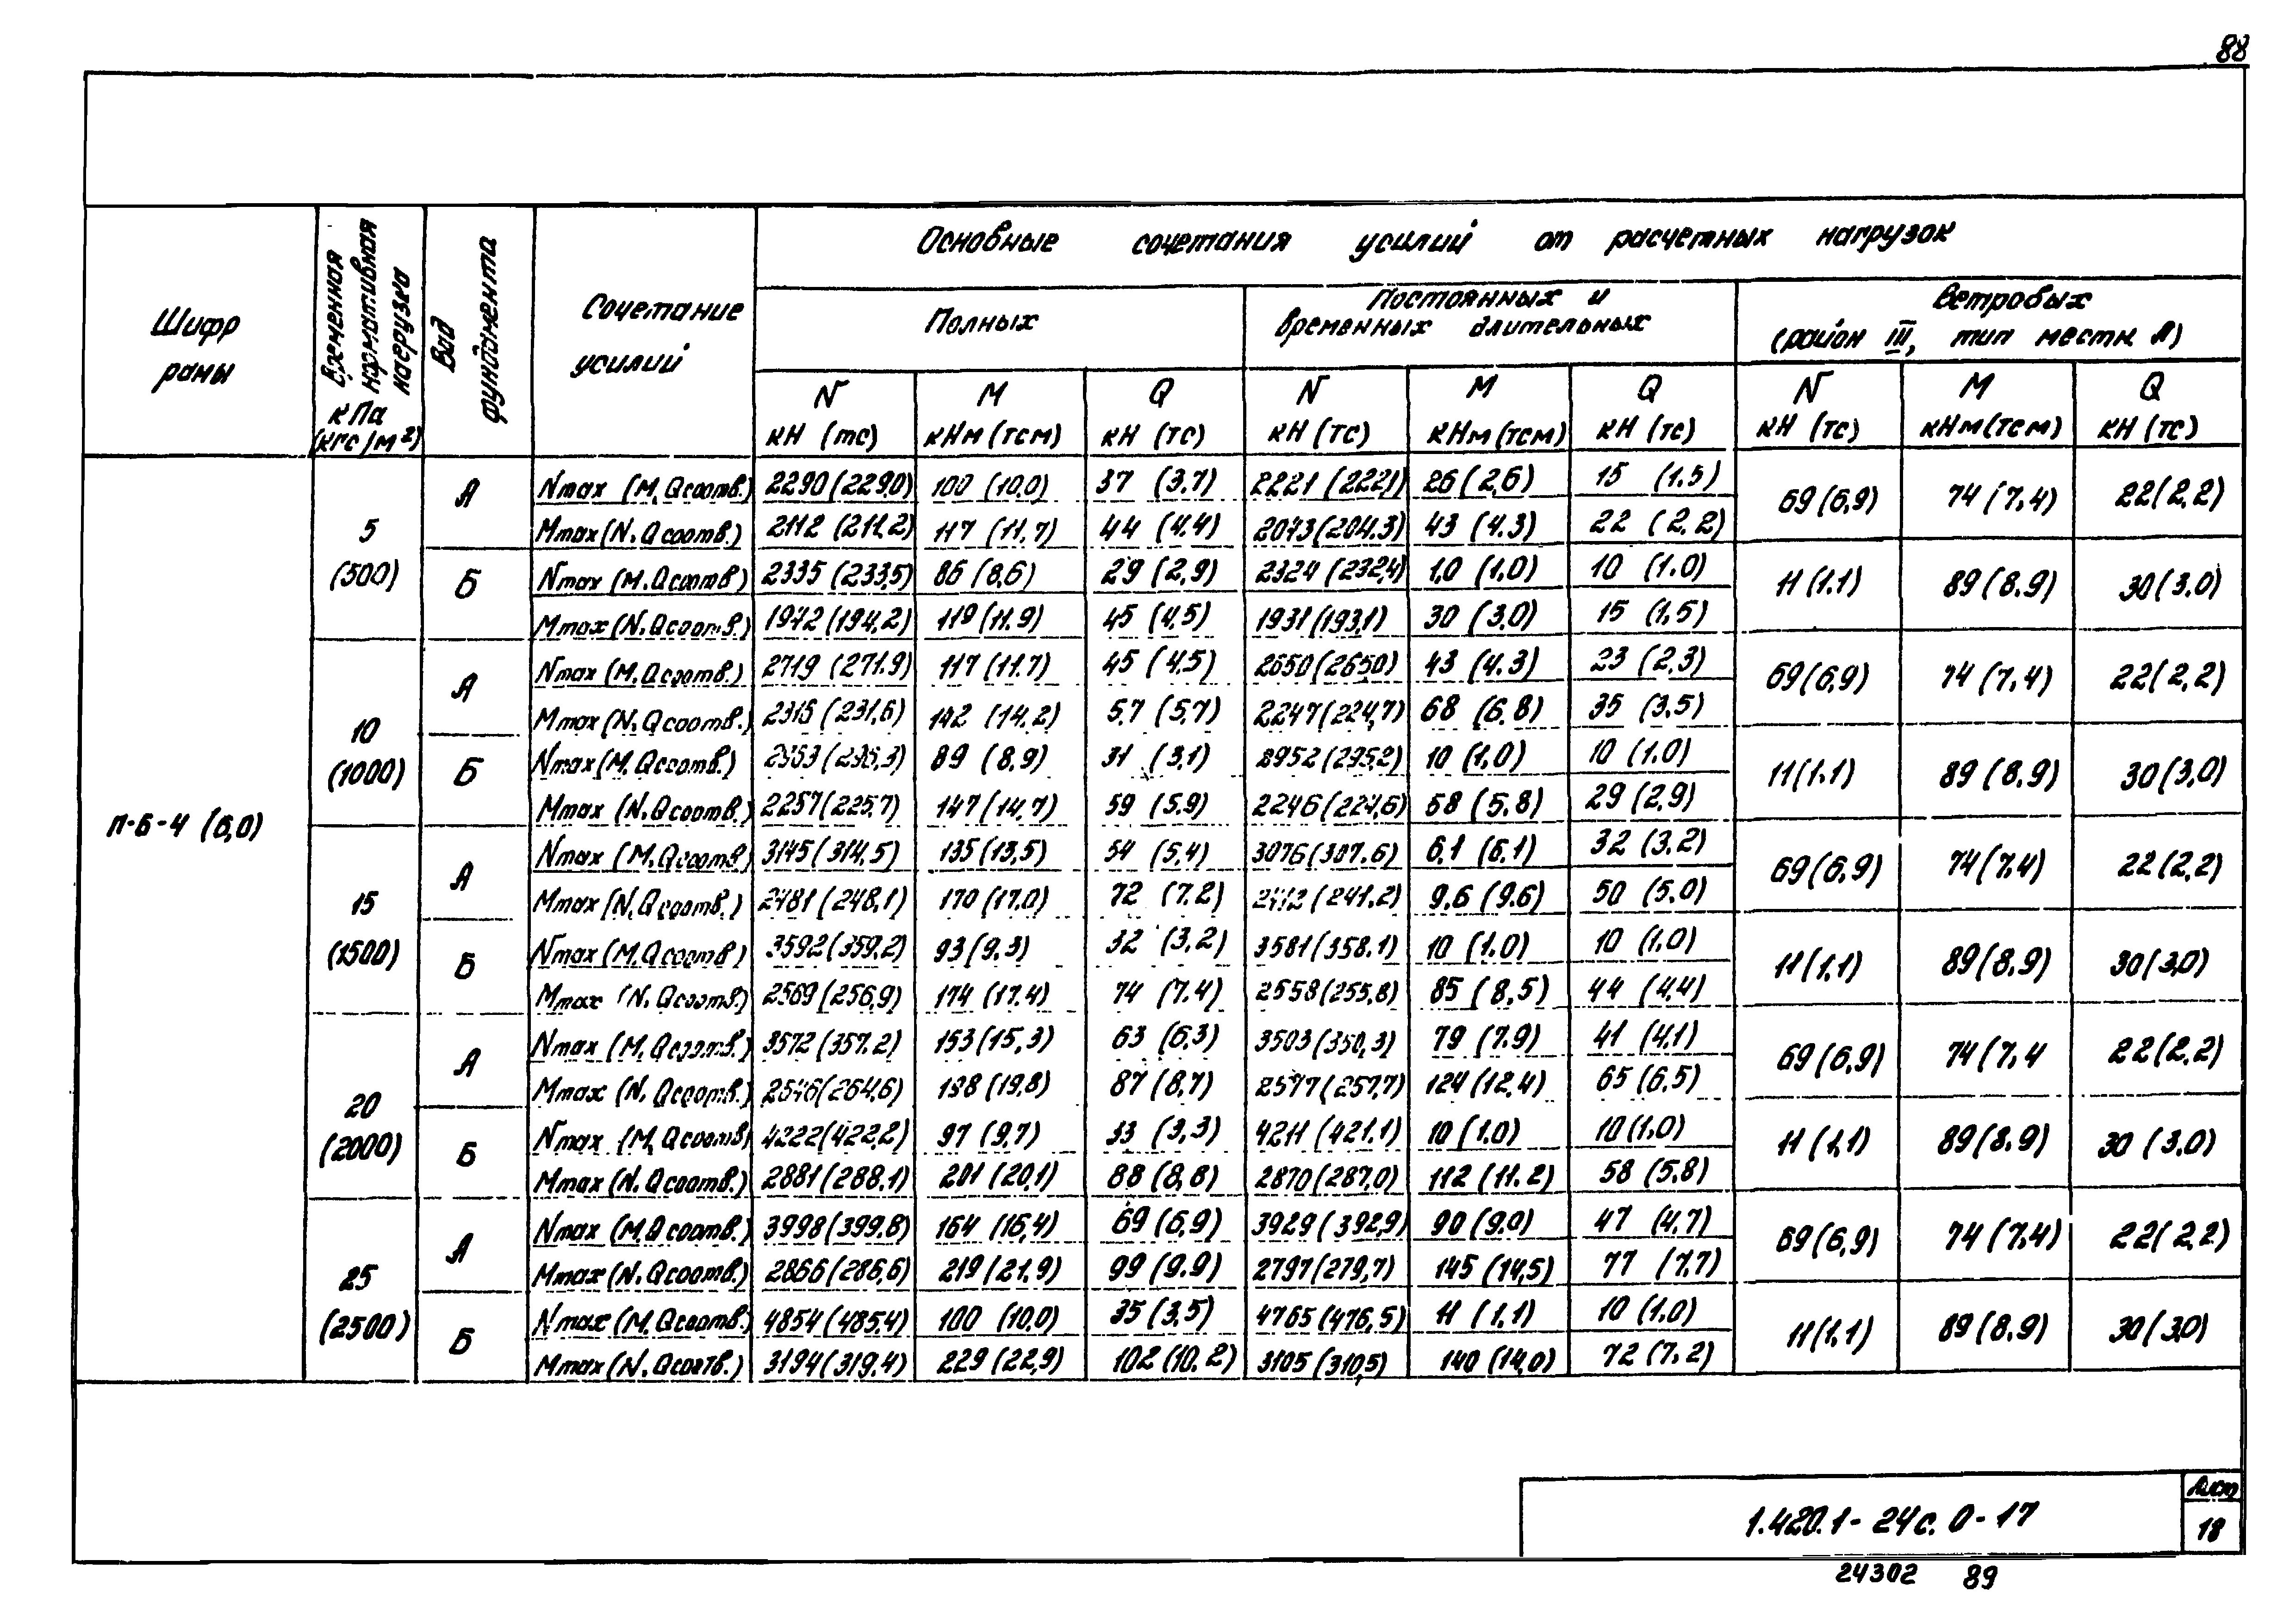 88
Шифр рамы
Временная нормативная нагрузка кПа (кгс/м²)
Вид фундамента
Сочетание усилий
Основные сочетания усилий от расчетных нагрузок
Полных
Постоянных и временных длительных
Ветровых (район III, тип местн А)
N кН (тс) M кНм (тсм) Q кН (тс) N кН (тс) M кНм (тсм) Q кН (тс) N кН (тс) M кНм (тсм) Q кН (тс)
П-6-4 (6,0)
5 (500)
А Nmax (M, Qсоотв.) 2290 (229,0) 100 (10,0) 37 (3,7) 2221 (222,1) 26 (2,6) 15 (1,5) 69 (6,9) 74 (7,4) 22 (2,2)
Mmax (N. Qсоотв.) 2112 (211,2) 117 (11,7) 44 (4,4) 2043 (204,3) 43 (4,3) 22 (2,2)
Б Nmax (M. Qсоотв) 2335 (233,5) 86 (8,6) 29 (2,9) 2324 (232,4) 1,0 (1,0) 10 (1,0) 11 (1,1) 89 (8,9) 30 (3,0)
Mmax (N. Qсоотв.) 1942 (194,2) 119 (11,9) 45 (4,5) 1931 (193,1) 30 (3,0) 15 (1,5)
10 (1000)
А Nmax (M. Qсоотв.) 2719 (271,9) 117 (11,7) 45 (4,5) 2650 (2650) 43 (4,3) 23 (2,3) 69 (6,9) 74 (7,4) 22 (2,2)
Mmax (N. Qсоотв.) 2316 (231,6) 142 (14,2) 5,7 (5,7) 2247 (224,7) 68 (6,8) 35 (3,5)
Б Nmax (M, Qсоотв.) 89 (8,9) 31 (3,1) 2952 (295,2) 10 (1,0) 10 (1,0) 11 (1,1) 89 (8,9) 30 (3,0)
Mmax (N. Qсоотв.) 2257 (225,7) 147 (14,7) 59 (5,9) 2246 (224,6) 58 (5,8) 29 (2,9)
15 (1500)
А Nmax (M. Qсоотв) 3145 (314,5) 135 (13,5) 54 (5,4) 3076 (307,6) 6,1 (6,1) 32 (3,2) 69 (6,9) 74 (7,4) 22 (2,2)
Mmax (N. Qсоотв.) 2481 (248,1) 170 (17,0) 72 (7,2) 2412 (241,2) 9,6 (9,6) 50 (5,0)
Б Nmax (M, Qсоотв) 3592 (359,2) 93 (9,3) 32 (3,2) 3581 (358,1) 10 (1,0) 10 (1,0) 11 (1,1) 89 (8,9) 30 (3,0)
Mmax (N. Qсоотв.) 2569 (256,9) 174 (17,4) 74 (7,4) 2558 (255,8) 85 (8,5) 44 (4,4)
20 (2000)
А Nmax (M, Qсоотв.) 3572 (357,2) 153 (15,3) 63 (6,3) 3503 (350,3) 79 (7,9) 41 (4,1) 69 (6,9) 74 (7,4 22 (2,2)
Mmax (N. Qсоотв.) 2646 (264,6) 198 (19,8) 87 (8,7) 2577 (257,7) 124 (12,4) 65 (6,5)
Б Nmax (M, Qсоотв) 4222 (422,2) 97 (9,7) 33 (3,3) 4211 (421,1) 10 (1,0) 10 (1,0) 11 (1,1) 89 (8,9) 30 (3,0)
Mmax (N. Qсоотв.) 2881 (288,1) 201 (20,1) 88 (8,8) 2870 (287,0) 112 (11,2) 58 (5,8)
25 (2500)
А Nmax (M, Qсоотв.) 3998 (399,8) 164 (16,4) 69 (6,9) 3929 (392,9) 90 (9,0) 47 (4,7) 69 (6,9) 74 (7,4) 22 (2,2)
Mmax (N. Qсоотв.) 2866 (286,6) 219 (21,9) 99 (9,9) 2797 (279,7) 145 (14,5) 77 (7,7)
Б Nmax (M, Qсоотв.) 4854 (485,4) 100 (10,0) 35 (3,5) 4765 (476,5) 11 (1,1) 10 (1,0) 11 (1,1) 89 (8,9) 30 (3,0)
Mmax (N. Qсоотв.) 3194 (319,4) 229 (22,9) 102 (10,2) 3105 (310,5) 140 (14,0) 72 (7,2)
1.420.1-24с. 0-17
Лист
18
24302 89